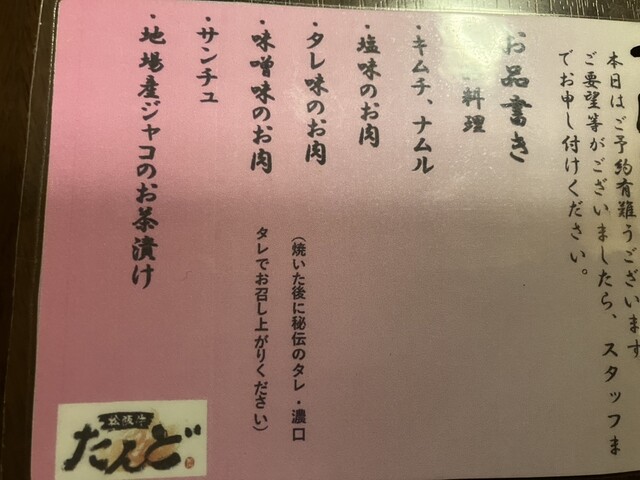 本日はご予約有難うございます
ご要望等がございましたら、スタッフま
でお申し付けください。
お品書き
料理
・キムチ、ナムル
・塩味のお肉
・タレ味のお肉
（焼いた後に秘伝のタレ・濃口
・味噌味のお肉
タレでお召し上がりください）
・サンチュ
・地場産ジャコのお茶漬け
たんど